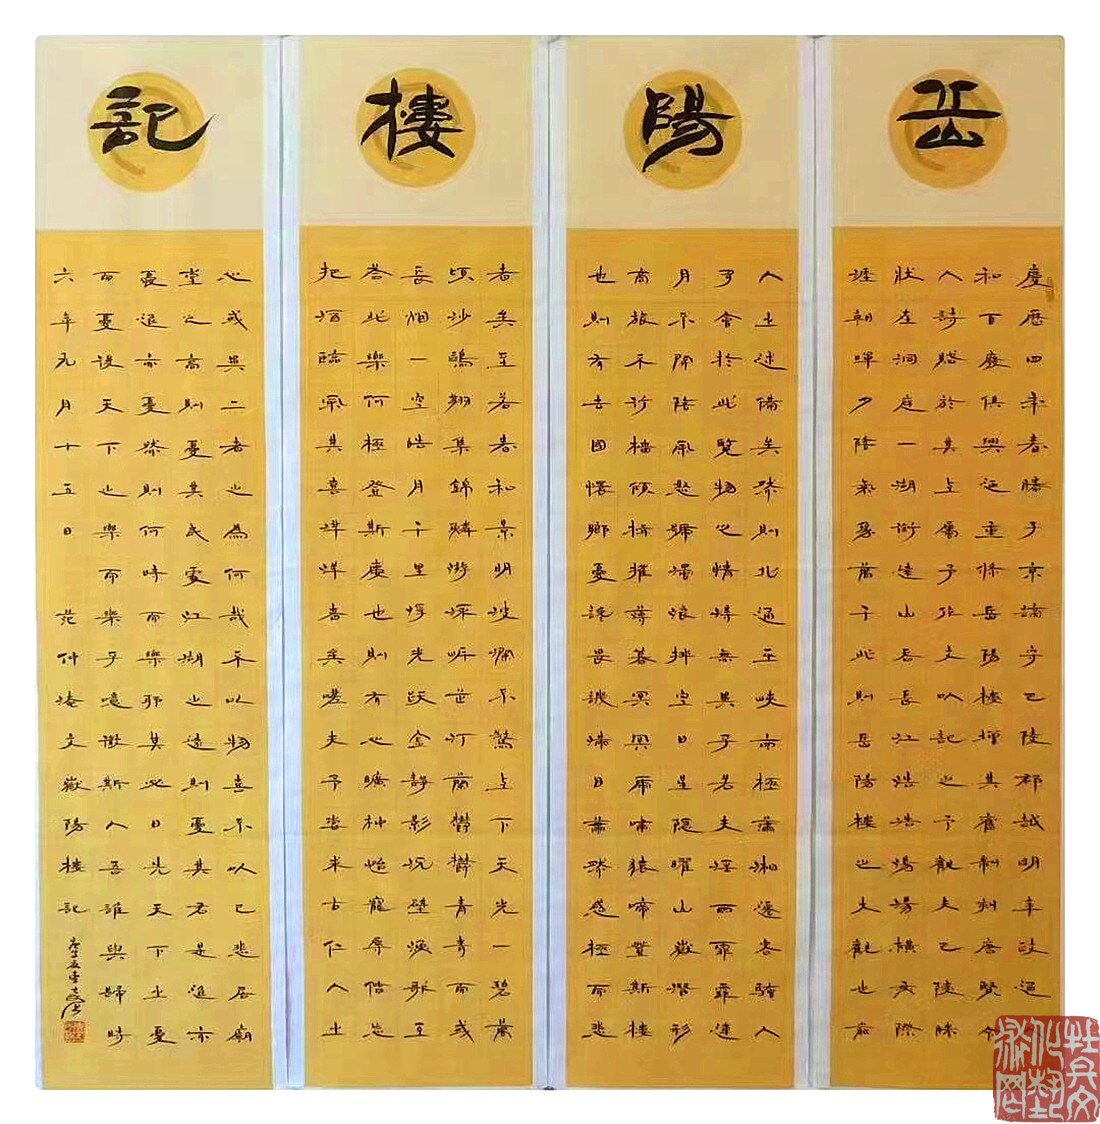 岳陽樓記
慶曆四年春滕子京謫守巴陵郡越明年政通
和百廢俱興迺重修岳陽樓增其舊制刻唐賢今
人詩賦於其上屬予作文以記之予觀夫巴陵勝
狀在洞庭一湖銜遠山吞長江浩浩湯湯橫無際
涯朝暉夕陰氣象萬千此則岳陽樓之大觀也前
人之述備矣然則北通巫峽南極瀟湘遷客騷人
多會於此覽物之情得無異乎若夫淫雨霏霏連
月不開陰風怒號濁浪排空日星隱曜山嶽潛形
商旅不行檣傾楫摧薄暮冥冥虎嘯猿啼登斯樓
也則有去國懷鄉憂讒畏譏滿目蕭然感極而悲
者矣至若春和景明波瀾不驚上下天光一碧萬
頃沙鷗翔集錦鱗游泳岸芷汀蘭鬱鬱青青而或
長煙一空皓月千里浮光躍金靜影沉璧漁歌互
答此樂何極登斯樓也則有心曠神怡寵辱偕忘
把酒臨風其喜洋洋者矣嗟夫予嘗求古仁人之
心或異二者之為何哉不以物喜不以己悲居廟
堂之高則憂其民處江湖之遠則憂其君是進亦
憂退亦憂然則何時而樂耶其必曰先天下之憂
而憂後天下之樂而樂乎噫微斯人吾誰與歸時
六年九月十五日 范仲淹文嶽陽樓記
牡丹文化藝術网